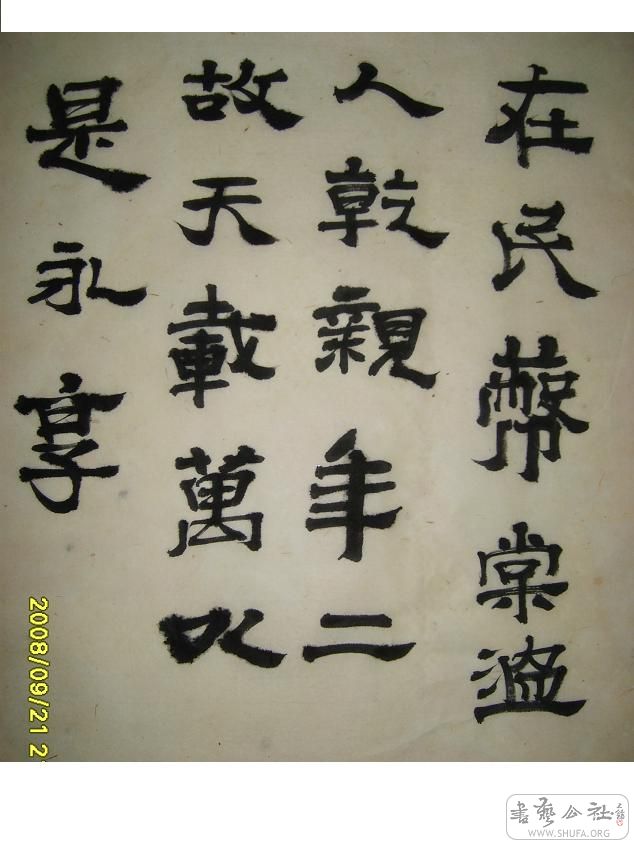 在民蔽棠温
人乾親年二
故天載萬以
是永享
2008/09/21 2
書藝公社
WWW.SHUFA.ORG